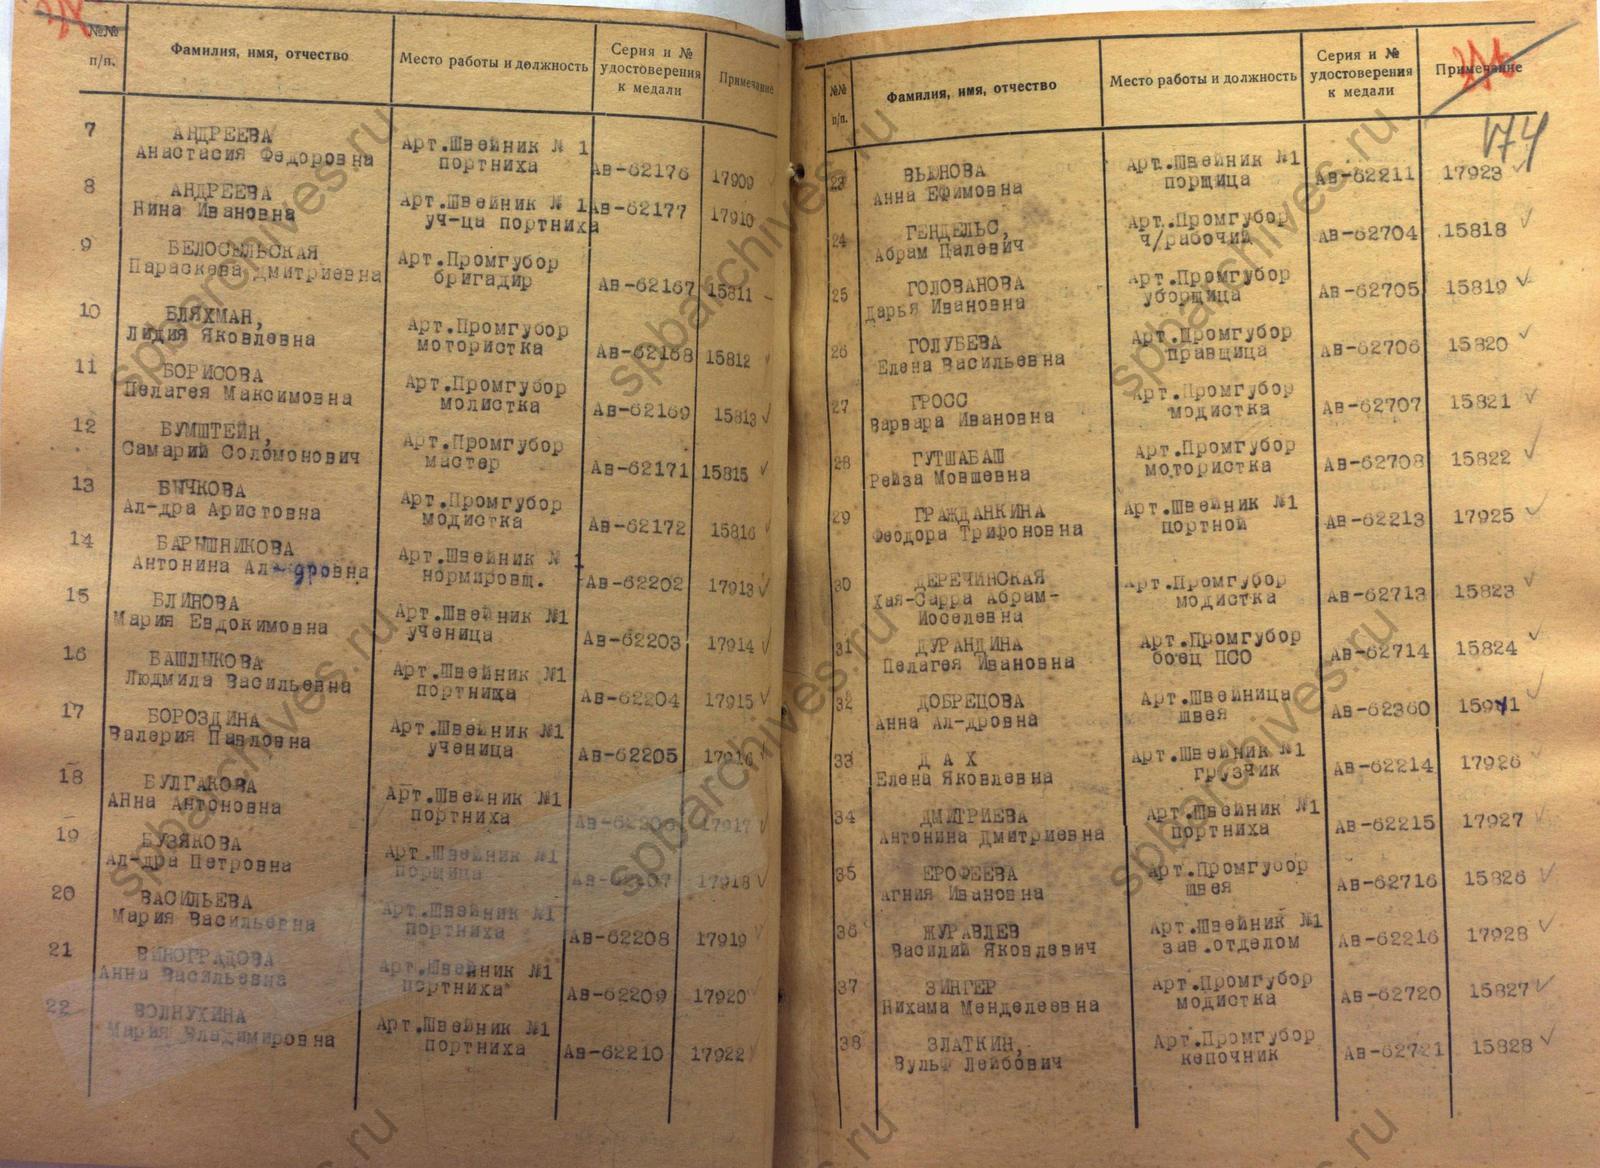 №№ п/п.
Фамилия, имя, отчество
Место работы и должность
Серия и № удостоверения к медали
Примечание
7
АНДРЕЕВА
Анастасия Федоровна
Арт.Швейник № 1
портниха
Ав-62176
17909
8
АНДРЕЕВА
Нина Ивановна
Арт.Швейник № 1
уч-ца портниха
Ав-62177
17910
9
БЕЛОСЕЛЬСКАЯ
Параскева Дмитриевна
Арт.Промгубор
бригадир
Ав-62167
15811
10
БЛЯХМАН,
Лидия Яковлевна
Арт.Промгубор
мотористка
Ав-62168
15812
11
БОРИСОВА
Пелагея Максимовна
Арт.Промгубор
молистка
Ав-62169
15813
12
БУМШТЕЙН,
Самарий Соломонович
Арт.Промгубор
мастер
Ав-62171
15815
13
БЫЧКОВА
Ал-дра Аристовна
Арт.Промгубор
модистка
Ав-62172
15816
14
БАРЫШНИКОВА
Антонина Ал-дровна
Арт.Швейник № 1
нормировщ.
Ав-62202
17913
15
БЛИНОВА
Мария Евдокимовна
Арт.Швейник №1
ученица
Ав-62203
17914
16
БАШЛЫКОВА
Людмила Васильевна
Арт.Швейник №1
портниха
Ав-62204
17915
17
БОРОЗДИНА
Валерия Павловна
Арт.Швейник №1
ученица
Ав-62205
17916
18
БУЛГАКОВА
Анна Антоновна
Арт.Швейник №1
портниха
Ав-62206
17917
19
БУЗЯКОВА
Ал-дра Петровна
Арт.Швейник №1
порщица
Ав-62207
17918
20
ВАСИЛЬЕВА
Мария Васильевна
Арт.Швейник №1
портниха
Ав-62208
17919
21
ВИНОГРАДОВА
Анна Васильевна
Арт.Швейник №1
портниха
Ав-62209
17920
22
ВОЛНУХИНА
Мария Владимировна
Арт.Швейник №1
портниха
Ав-62210
17922
№№ п/п.
Фамилия, имя, отчество
Место работы и должность
Серия и № удостоверения к медали
Примечание
174
23
ВЬЮНОВА
Анна Ефимовна
Арт.Швейник №1
порщица
Ав-62211
17923
24
ГЕНДЕЛЬС,
Абрам Цалевич
Арт.Промгубор
ч/рабочий
Ав-62704
15818
25
ГОЛОВАНОВА
Дарья Ивановна
Арт.Промгубор
уборщица
Ав-62705
15819
26
ГОЛУБЕВА
Елена Васильевна
Арт.Промгубор
правщица
Ав-62706
15820
27
ГРОСС
Варвара Ивановна
Арт.Промгубор
модистка
Ав-62707
15821
28
ГУТШАБАШ
Рейза Мовшевна
Арт.Промгубор
мотористка
Ав-62708
15822
29
ГРАЖДАНКИНА
Феодора Трифоновна
Арт.Швейник №1
портной
Ав-62213
17925
30
ДЕРЕЧИНСКАЯ
Хая-Сарра Абрам-
Иоселевна
Арт.Промгубор
модистка
Ав-62713
15823
31
ДУРАНДИНА
Пелагея Ивановна
Арт.Промгубор
боец ПСО
Ав-62714
15824
32
ДОБРЕЦОВА
Анна Ал-дровна
Арт.Швейница
швея
Ав-62360
33
Д А Х
Елена Яковлевна
Арт.Швейник №1
грузчик
Ав-62214
17926
34
ДМИТРИЕВА
Антонина Дмитриевна
Арт.Швейник №1
портниха
Ав-62215
17927
35
ЕРОФЕЕВА
Агния Ивановна
Арт.Промгубор
швея
Ав-62716
15826
36
ЖУРАВЛЕВ
Василий Яковлевич
Арт.Швейник №1
зав.отделом
Ав-62216
17928
37
ЗИНГЕР
Нихама Менделеевна
Арт.Промгубор
модистка
Ав-62720
15827
38
ЗЛАТКИН,
Вульф Лейбович
Арт.Промгубор
кепочник
Ав-62721
15828
spbarchives.ru
spbarchives.ru
spbarchives.ru
spbarchives.ru
spbarchives.ru
spbarchives.ru